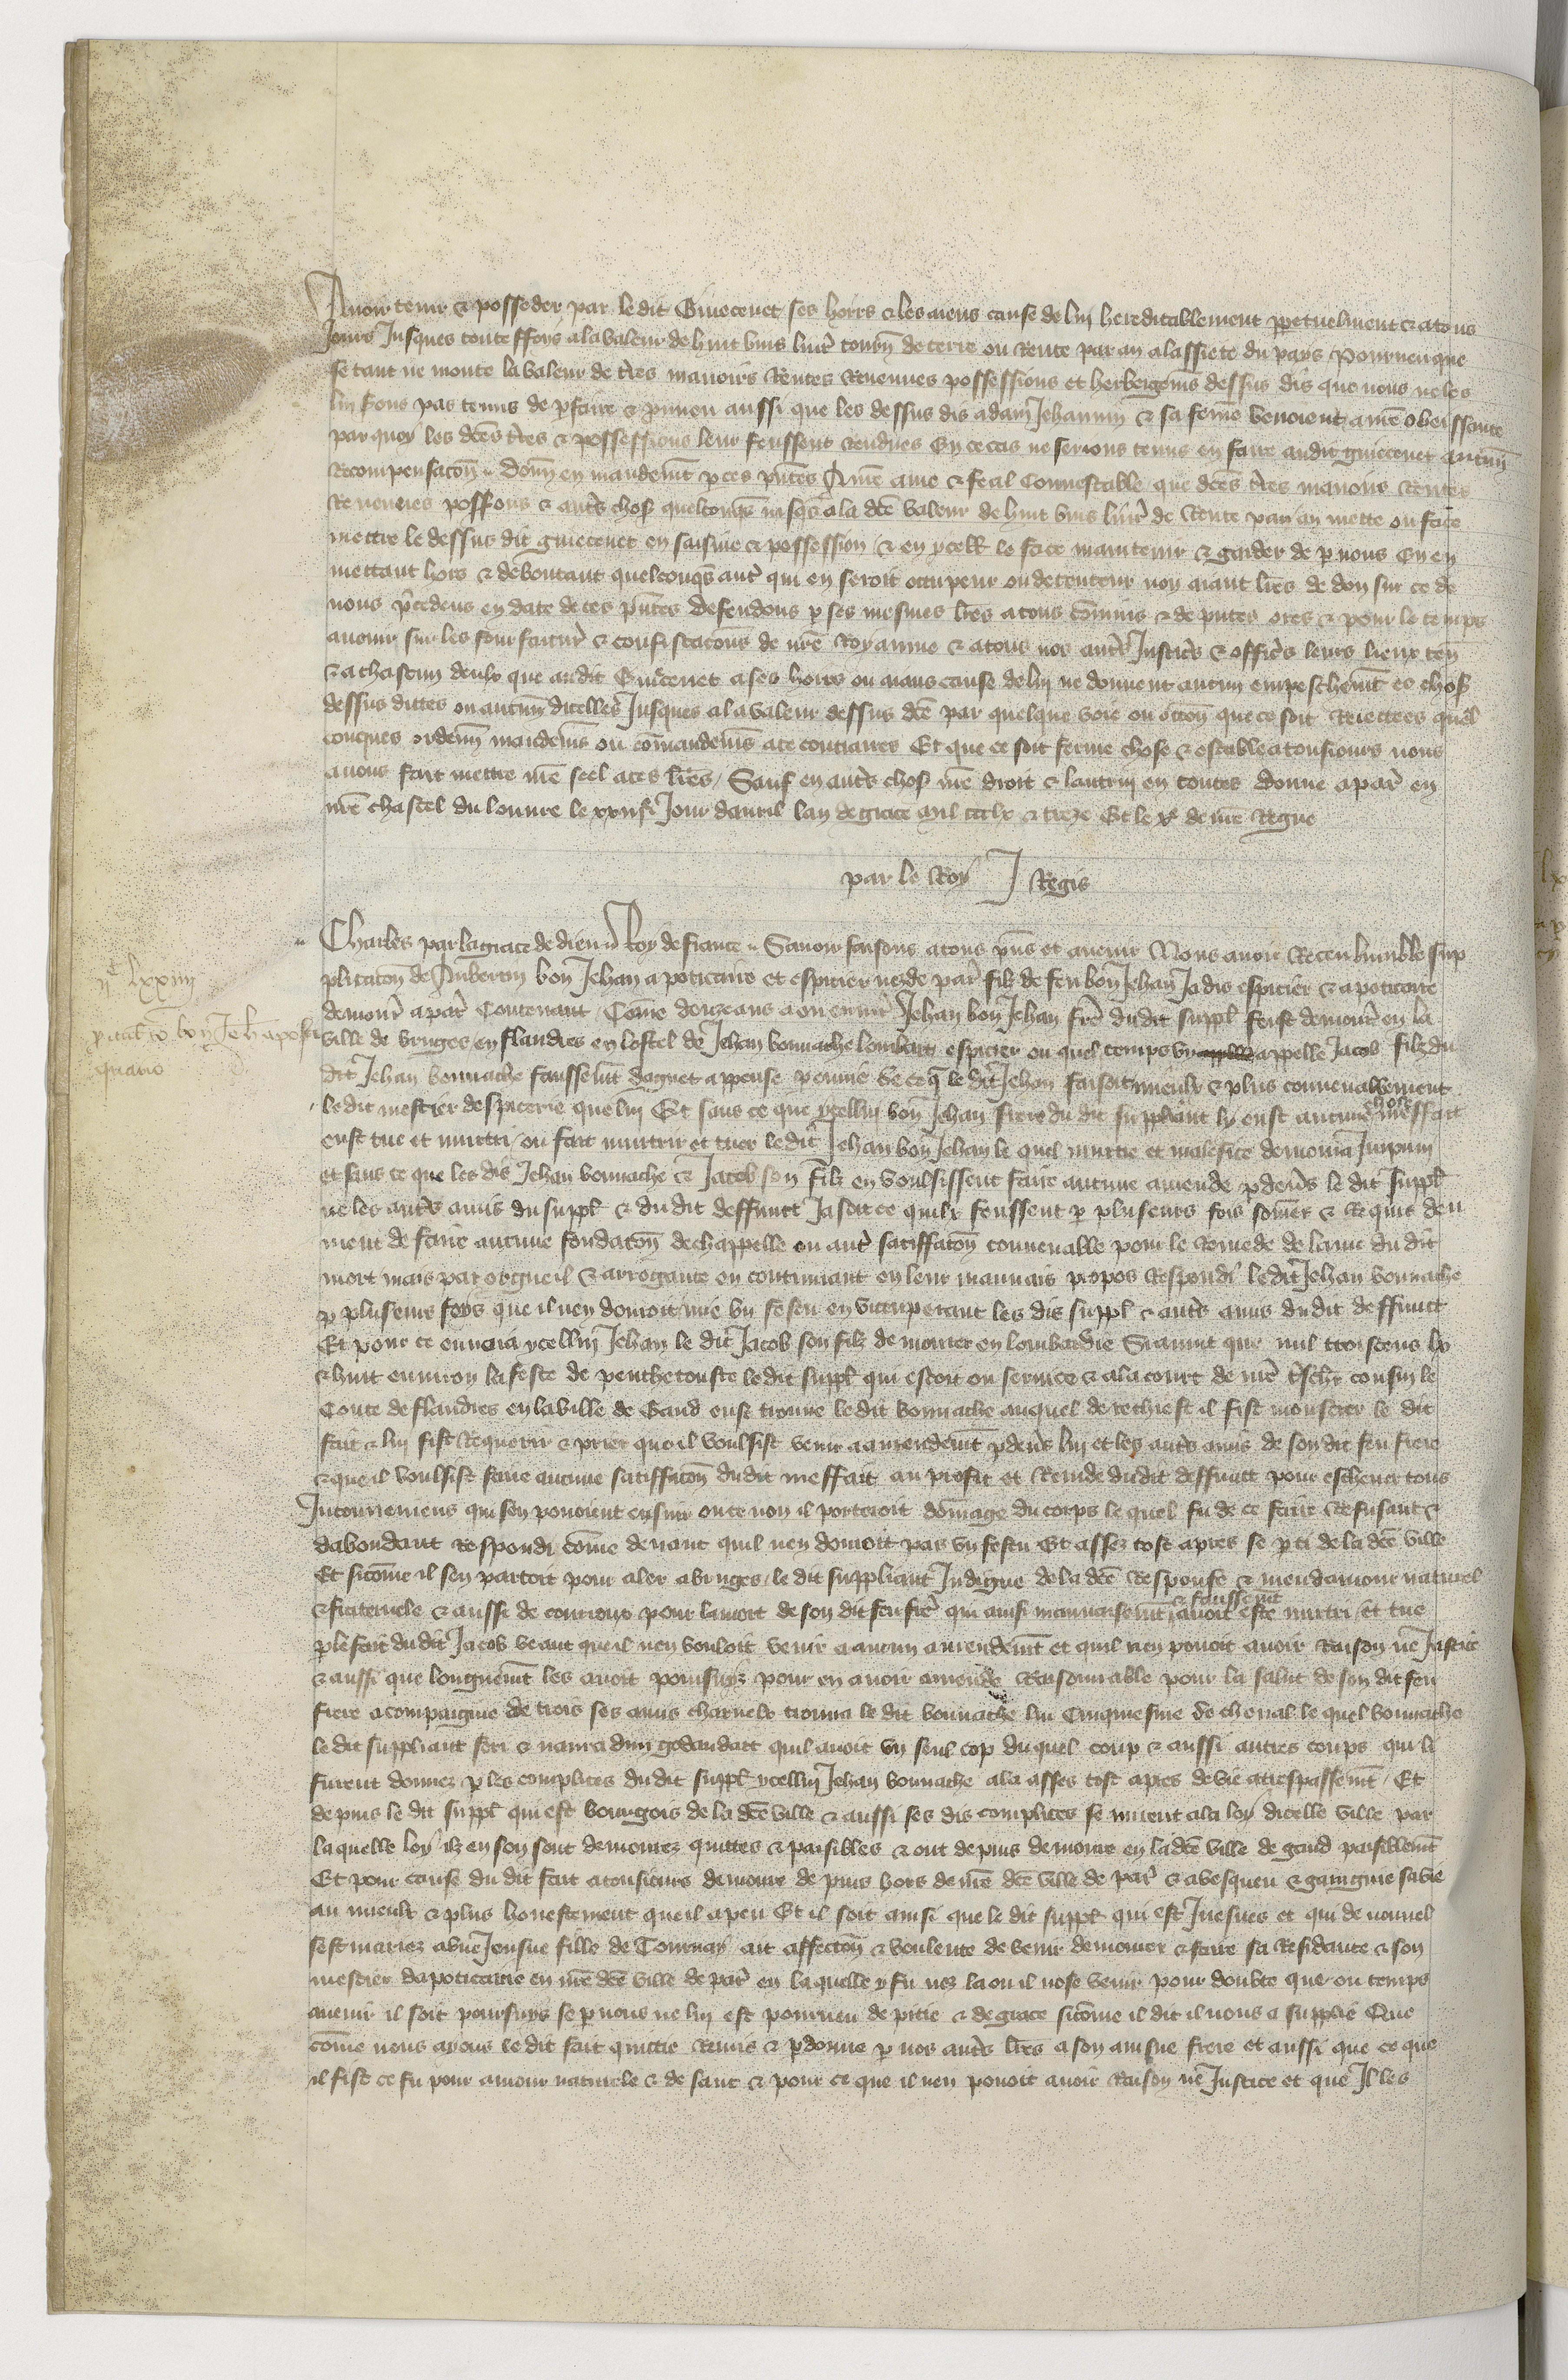 Avoir tenir & posseder par le dit Guiecenet ses hoirs & les aiens cause de luy hereditablement ppetuelment & a tous
Jours Jusques toute ffoys a la valeur de huit vins livr̃ tourñ de terre ou Rente par an a lassiete du pays Pourveu que
se tant ne monte la valeur de t̃res manoirs Rentes Revenues possessions et herbeigem̃s dessus dis que nous ne les
luy soiens pas tenus de p̃faire & purveu aussi que les dessus dis adam Jehannin & sa fem̃e venoient a n̄re obeissance
par quoy les dc̄es t̃res & possessions leur feussent Rendues En ce cas ne serions tenus en faire au dit guiecenet aucuñ
Recompensac̄oñ Donñ en mandem̃t p ces p̃ntes A n̄re ame & feal Connestable que dc̄es t̃res manoirs Rentes
Revenues possess̃ons & autr̃s chos̃ quelconq̃s jusq̃s a la dc̄e valeur de huit vins livr̃ de Rente par an mette ou face
mettre le dessus dit guiecenet en saisine & possession & en ycell̃ le face maintenir & garder de p nous En en
mettant hors & deboutant quelconq̃s autr̃ qui en seroit occupeur ou detenteur non aiant lr̄es de don sur ce de
nous p̃cedens en date de ces p̃ntes Defendons p ses mesmes lr̄es a tous com̄is & deputes ores & pour le temps
avenir sur les fourfaitur̃ & confiscac̄ons de n̄re Royaume & a tous nos autr̃s Justic̃s & offic̃s leurs lieux teñ
& a chascun deulx que au dit Guiecenet a ses hoirs ou aians cause de luy ne donnent aucun empeschem̃t es chos̃
dessus dittes ou aucuñ dicelles Jusques a la valeur dessus dc̄e par quelque voie ou c̄c̄oñ que ce soit Reiectees quel
conques ordenñ mandem̃s ou com̄andem̃s a ce contraires Et que ce soit ferme chose & estable a tousiours nous
avons fait mettre n̄re seel a ces lr̄es Sauf en autr̃s chos̃ n̄re droit & lautruy en toutes Donne a par̃ en
n̄re chastel du louvre le Jour davril lan de grace mil ccclx & treze Et le xᵉ de n̄re Regne
par le Roy J Regis
Charles par la grace de dieu Roy de france Savoir faisons a tous p̃ns et avenir Nous avoir Receu humble sup
plicac̄oñ de Aubertin bon Jehan apoticaire et espicier nez de par̃ filz de feu bon Jehan Jadis espicier & apoticaire
demour̃ a par̃ Contenant Com̄e douze ans a ou envir̃ Jehan bon Jehan fr̃e du dit suppl̃ feust demour̃ en la
ville de bruges en flandres en lostel de Jehan bonnache lombart espicier ou quel temps vn appelle Jacob filz du
dit Jehan bonnache faussem̃t daguet appense p envie de ce q̃ le dit Jehan faisoit mieulx & plus convenablement
le dit mestier despicerie que luy Et sans ce que ycelluy bon Jehan frere du dit suppliant ly eust aucune chose meffait
eust tue et murtri ou fait murtrir et tuer le dit Jehan bon Jehan le quel murtre et malefice demoura Jmpuni
et sans ce que les dis Jehan bonnache & Jacob son filz en voulsissent faire aucune amende p devers le dit suppl̃
ne les autr̃s amis du suppl̃ & du dit deffunct Ja soit ce quilz feussent p pluseurs fois som̄ez & Requis deu
ment de faire aucune fondac̄oñ de chappelle ou autr̃ satiffac̄oñ convenable pour le Remede de lame du dit
mort mais par orgueil & arrogance en continuant en leur mauvais propos Respondi le dit Jehan bonnache
p pluseurs foys que il nen donroit mie vn festu en vituperant les dis suppl̃ & autr̃s amis du dit deffunct
Et pour ce envoia ycelluy Jehan le dit Jacob son filz demourer en lombardie Si avint que mil trois cens lx
& huit environ la feste de penthecouste le dit suppl̃ qui estoit ou service & a la court de n̄re t̃sch̃r cousin le
Conte de flandres en la ville de Gand eust trouve le dit bonnache auquel de rechief il fist monstrer le dit
fait & luy fist Requerir & prier que il voulsist venir a amendem̃t p devers luy et les autr̃s amis de son dit feu frere
& que il voulsist faire aucune satiffac̄oñ du dit meffait au profit et Remede du dit deffunct pour eschever tous
Jnconveniens qui sen povoient ensuir ou ce non il porteroit dom̄age du corps le quel fu de ce faire Refusant &
dabondant Respondi com̄e devant quil nen donroit pas vn festu Et assez tost apres se p ti de la dc̄e ville
Et sicom̄e il sen partoit pour aler a bruges le dit suppliant Jndigne de la dc̄e Response & meu damour naturel
& fraternele & aussi de courroux pour la mort de son dit feu frere qui ainsi mauvaisem̃t & faussem̃t avoit este murtri et tue
p le fait du dit Jacob veant que il nen vouloit venir a aucun amendem̃t et quil nen povoit avoir Raison ne Justice
& aussi que longuem̃t les avoit poursuyz pour en avoir amende Raisonnable pour la salut de son dit feu
frere acompaigne de trois ses amis charnelz trouva le dit bonnache lui cinquiesme de cheval le quel bonnache
le dit suppliant feri & navra dun godandart quil avoit vn seul cop duquel coup & aussi autres coups qui li
furent donnez p les complices du dit suppl̃ ycelluy Jehan bonnache ala asses tost apres de vie a trespassem̃t Et
depuis le dit suppl̃ qui est bourgois de la dc̄e ville & aussi ses dis complices se mirent a la loy dicelle ville par
laquelle loy ilz en son sont demourez quittes & paisibles & ont depuis demoure en la dc̄e ville de gand paisiblem̃t
Et pour cause du dit fait a tousiours demoure depuis hors de n̄re dc̄e ville de par̃ & a vesquu & gaingnie sa vie
au mieulx & plus honestement que il a peu Et il soit ainsi que le dit suppl̃ qui est Juesnes et qui de nouvel
sest mariez a vne Jeusne fille de Tournay ait affecc̄oñ & voulente de venir demourer & faire sa Residance & son
mestier dapoticairie en n̄re dc̄e ville de par̃ en laquelle y fu nez la ou il nose venir pour doubte que ou temps
avenir il soit poursuys se p nous ne lui est pourveu de pitie & de grace sicom̄e il dit il nous a supplie Que
com̄e nous avons le dit fait quitte Remis & p donne p nos autr̃s lr̄es a son ainsne frere et aussi que ce que
il fist ce fu pour amour naturele & de sanc & pour ce que il nen povoit avoir Raison ne Justice et que Il les